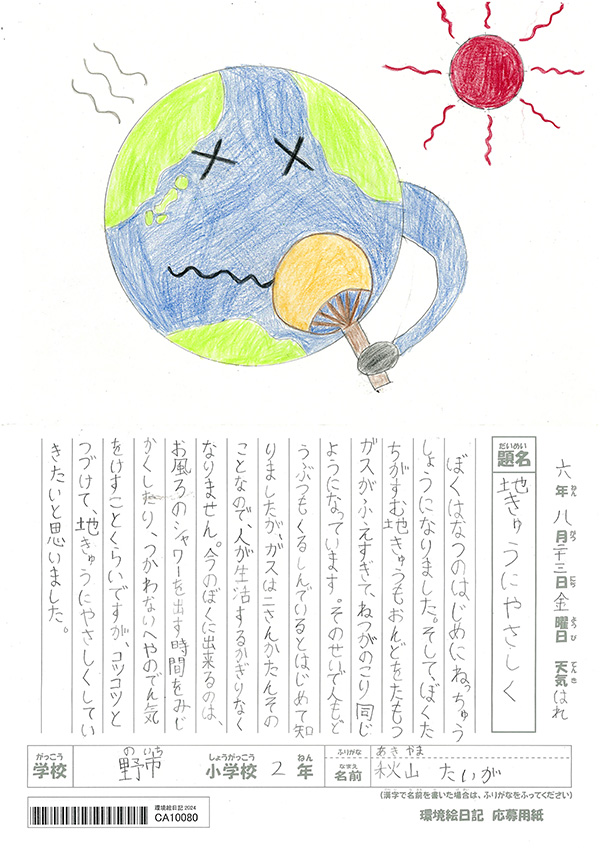 六年 八月二十三日 金曜日 天気 はれ
ねん がつ にち ようび てんき
だいめい
題名 地きゅうにやさしく
ぼくはなつのはじめにねっちゅう
しょうになりました。そして、ぼくた
ちがすむ地きゅうもおんどをたもつ
ガスがふえすぎて、ねつがのこり同じ
ようになっています。そのせいで人もど
うぶつもくるしんでいるとはじめて知
りましたが、ガスは二さんかたんその
ことなので、人が生活するかぎりなく
なりません。今のぼくに出来るのは、
お風ろのシャワーを出す時間をみじ
かくしたり、つかわないへやのでん気
をけすことくらいですが、コツコツと
つづけて、地きゅうにやさしくしてい
きたいと思いました。
がっこう のいち しょうがっこう ねん
学校 野市 小学校 2年
ふりがな あきやま
なまえ
名前 秋山 たいが
(漢字で名前を書いた場合は、ふりがなをふってください)
環境絵日記 2024
CA10080
環境絵日記 応募用紙